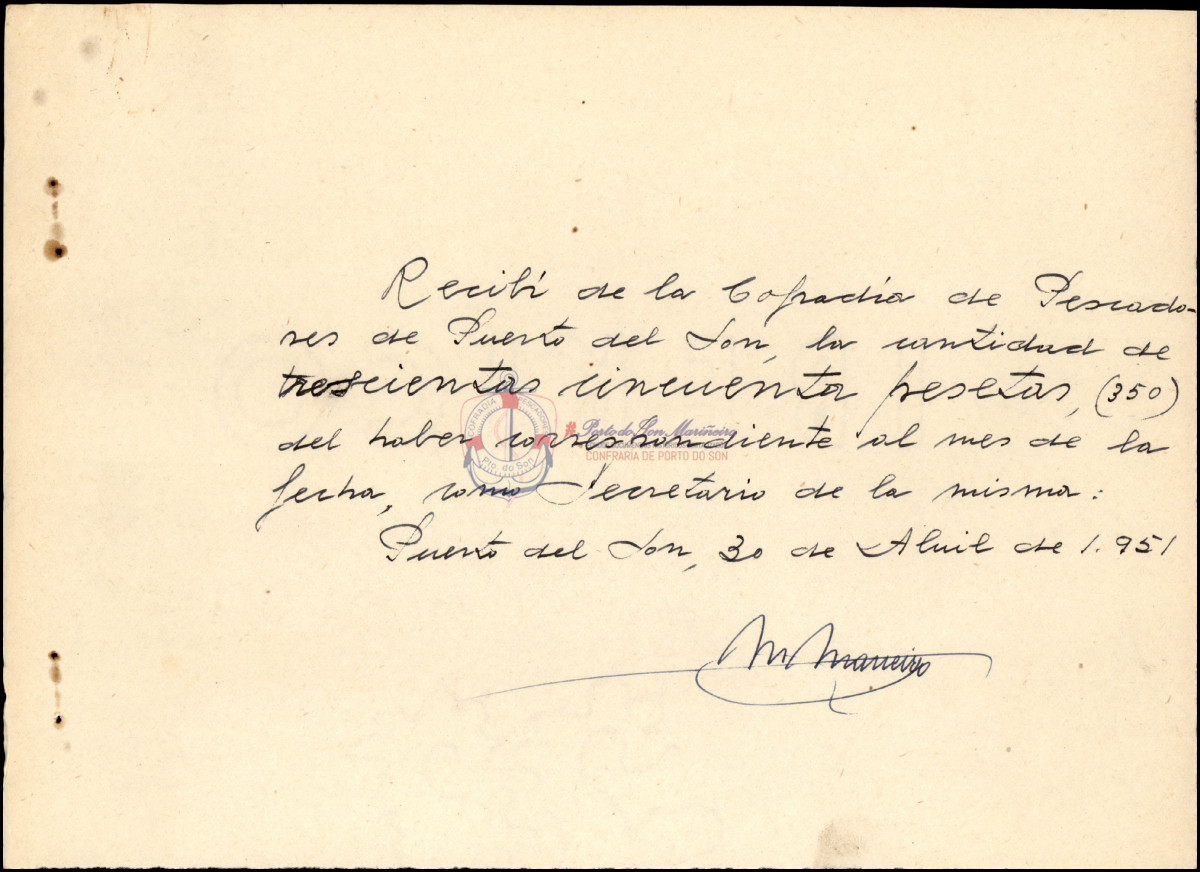 Recibí de la Cofradía de Pescado-
res de Puerto del Son, la cantidad de
trescientas cincuenta pesetas, (350)
del haber correspondiente al mes de la
fecha, como Secretario de la misma:
Puerto del Son, 30 de Abril de 1.951
COFRADIA PESCADORES
Pto. do Son
# Porto do Son Mariñeiro
CONFRARÍA DE PORTO DO SON
M Maneiro